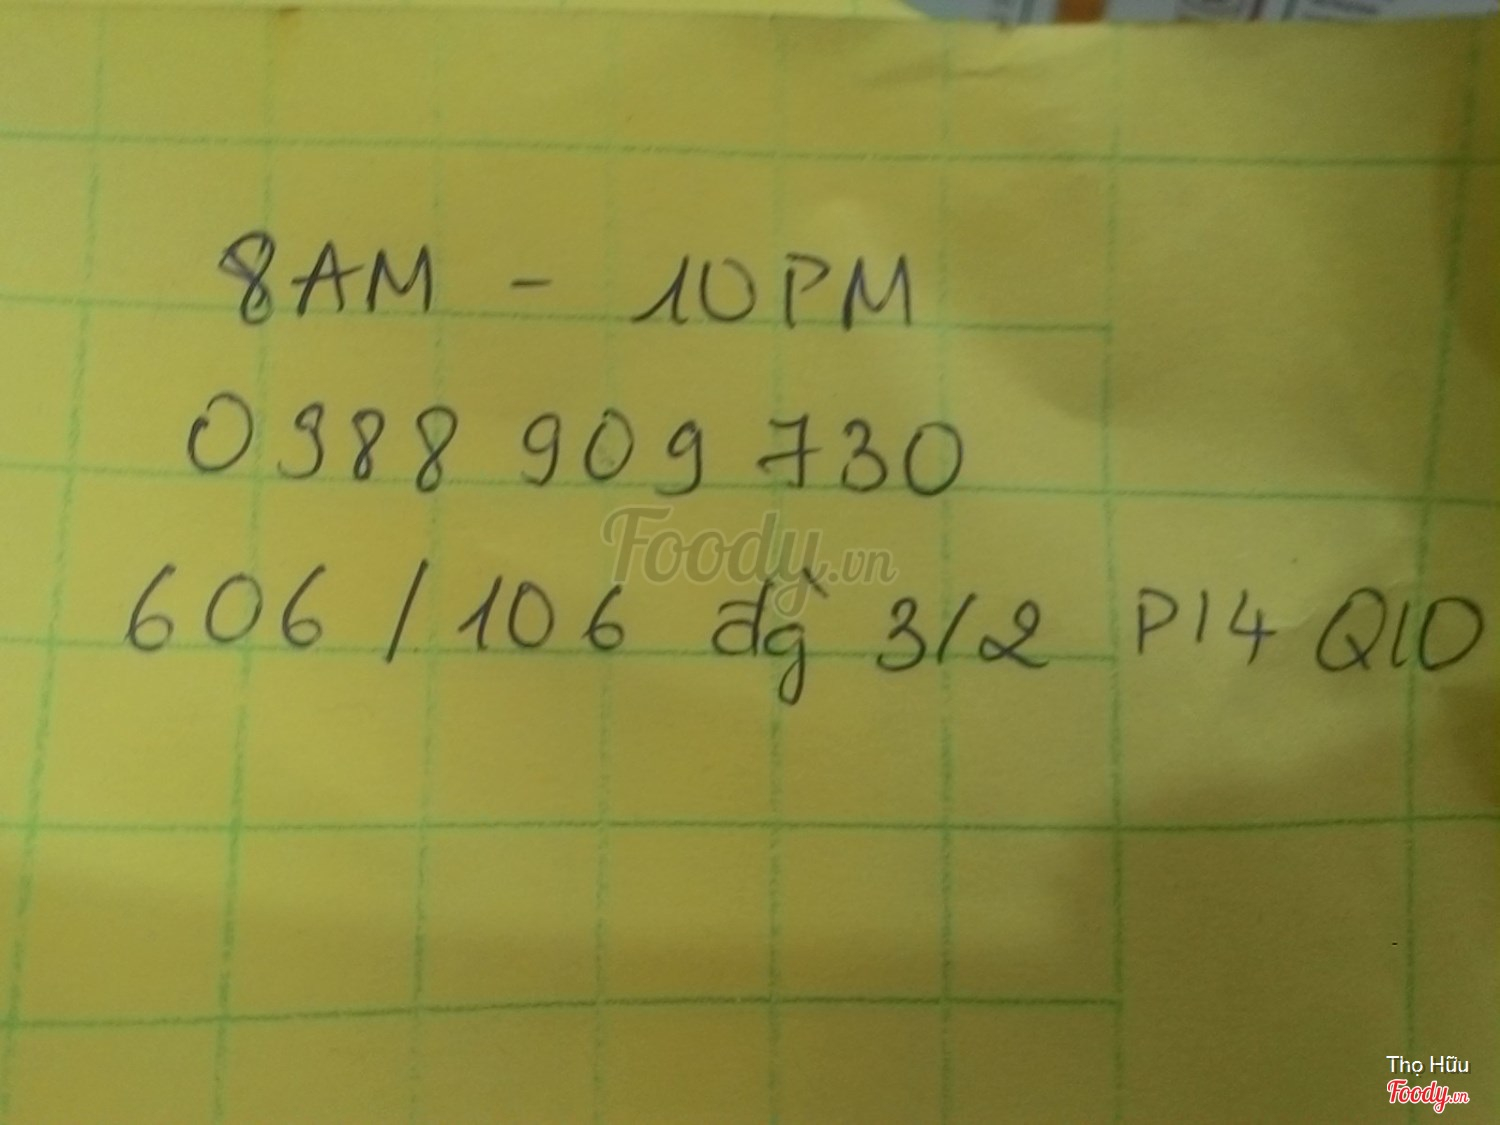 8AM - 10PM
0988 909 730
Foody.vn
606/106 đg̀ 3/2 P14 Q10
Thọ Hữu
Foody.vn